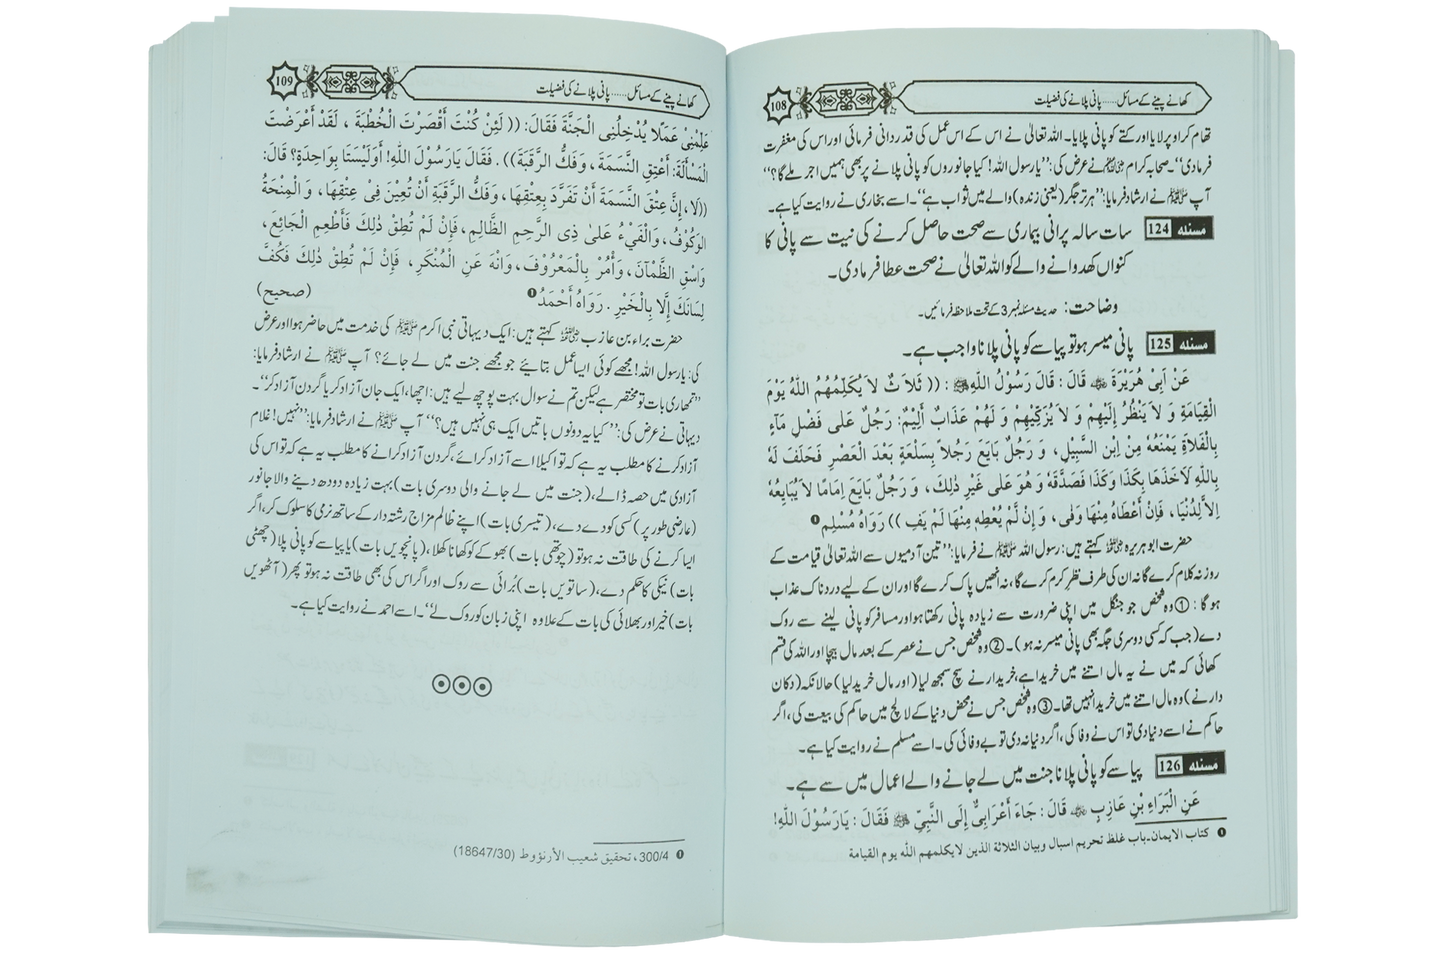 108
کھانے پینے کے مسائل...... پانی پلانے کی فضیلت
تھام کر اوپر لایا اور کتے کو پانی پلایا۔ اللہ تعالیٰ نے اس کے اس عمل کی قدر دانی فرمائی اور اس کی مغفرت
فرما دی‘‘۔ صحابہ کرام نے عرض کی: ’’یا رسول اللہ! کیا جانوروں کو پانی پلانے پر بھی ہمیں اجر ملے گا؟‘‘
آپ ﷺ نے ارشاد فرمایا: ’’ہر تر جگر (یعنی زندہ) والے میں ثواب ہے‘‘۔ اسے بخاری نے روایت کیا ہے۔
مسئله 124 سات سالہ پرانی بیماری سے صحت حاصل کرنے کی نیت سے پانی کا
کنواں کھدوانے والے کو اللہ تعالیٰ نے صحت عطا فرما دی۔
وضاحت: حدیث مسئلہ نمبر 3 کے تحت ملاحظہ فرمائیں۔
مسئله 125 پانی میسر ہو تو پیاسے کو پانی پلانا واجب ہے۔
عَنْ اَبِیْ هُرَيْرَةَ ﷺ قَالَ : قَالَ رَسُوْلُ اللهِ ﷺ : (( ثَلاَ ثٌ لاَ يُكَلِّمُهُمُ اللهُ يَوْمَ
الْقِيَامَةِ وَ لاَ يَنْظُرُ إِلَيْهِمْ وَ لاَ يُزَكِّيْهِمْ وَ لَهُمْ عَذَابٌ أَلِيْمٌ: رَجُلٌ عَلى فَضْلِ مَآءٍ
بِالْفَلاَةِ يَمْنَعُهُ مِنْ اِبنِ السَّبِيْلِ، وَ رَجُلٌ بَايَعَ رَجُلاً بِسَلْعَةٍ بَعْدَ الْعَصْرِ فَحَلَفَ لَهُ
بِاللهِ لَاَخَذَهَا بِكَذَا وَكَذَا فَصَدَّقَهُ وَ هُوَ عَلى غَيْرِ ذٰلِكَ، وَ رَجُلٌ بَايَعَ اِمَامًا لاَ يُبَايِعُهُ
اِلاَّ لِدُنْيَا، فَإِنْ أَعْطَاهُ مِنْهَا وَفٰى، وَ إِنْ لَّمْ يُعْطِهِ مِنْهَا لَمْ يَفِ )) رَوَاهُ مُسْلِم
حضرت ابو ہریرہ کہتے ہیں: رسول اللہ ﷺ نے فرمایا: ’’تین آدمیوں سے اللہ تعالیٰ قیامت کے
روز نہ کلام کرے گا نہ ان کی طرف نظر کرم کرے گا، نہ انھیں پاک کرے گا اور ان کے لیے دردناک عذاب
ہو گا : ① وہ شخص جو جنگل میں اپنی ضرورت سے زیادہ پانی رکھتا ہو اور مسافر کو پانی لینے سے روک
دے (جب کہ کسی دوسری جگہ بھی پانی میسر نہ ہو)۔ ② وہ شخص جس نے عصر کے بعد مال بیچا اور اللہ کی قسم
کھائی کہ میں نے یہ مال اتنے میں خریدا ہے، خریدار نے سچ سمجھ لیا (اور مال خرید لیا) حالانکہ (دکان
دار نے) وہ مال اتنے میں خریدا نہیں تھا۔ ③ وہ شخص جس نے محض دنیا کے لالچ میں حاکم کی بیعت کی، اگر
حاکم نے اسے دنیا دی تو اس نے وفا کی، اگر دنیا نہ دی تو بے وفائی کی۔ اسے مسلم نے روایت کیا ہے۔
مسئله 126 پیاسے کو پانی پلانا جنت میں لے جانے والے اعمال میں سے ہے۔
عَنِ الْبَرَاءِ بْنِ عَازِبٍ قَالَ : جَاءَ أَعْرَابِيٌّ إِلَى النَّبِيِّ ﷺ فَقَالَ : يَارَسُوْلَ اللهِ!
❶ كتاب الايمان۔باب غلظ تحريم اسبال وبيان الثلاثة الذين لا يكلمهم الله يوم القيامة
109
کھانے پینے کے مسائل...... پانی پلانے کی فضیلت
عَلِّمْنِيْ عَمَلًا يُدْخِلُنِى الْجَنَّةَ فَقَالَ: (( لَئِنْ كُنْتَ أَقْصَرْتَ الْخُطْبَةَ ، لَقَدْ أَعْرَضْتَ
الْمَسْأَلَةَ: أَعْتِقِ النَّسَمَةَ، وَفُكُّ الرَّقَبَةَ)) . فَقَالَ يَارَسُوْلَ اللهِ! أَوَلَيْسَتَا بِوَاحِدَةٍ؟ قَالَ:
((لَا، إِنَّ عِتْقَ النَّسَمَةَ أَنْ تَفَرَّدَ بِعِتْقِهَا، وَفَكُّ الرَّقَبَةِ أَنْ تُعِيْنَ فِيْ عِتْقِهَا، وَ الْمِنْحَةُ
الْوَكُوْفُ، وَالْفَيْءُ عَلٰى ذِى الرَّحِمِ الظَّالِمِ، فَإِنْ لَمْ تُطِقْ ذٰلِكَ فَأَطْعِمِ الْجَائِعَ،
وَاسْقِ الظَّمْآنَ، وَأْمُرْ بِالْمَعْرُوْفِ، وَانْهَ عَنِ الْمُنْكَرِ، فَإِنْ لَمْ تُطِقْ ذٰلِكَ فَكُفَّ
لِسَانَكَ إِلَّا بِالْخَيْرِ . رَوَاهُ أَحْمَدُ ❶ (صحيح)
حضرت براء بن عازب کہتے ہیں: ایک دیہاتی نبی اکرم ﷺ کی خدمت میں حاضر ہوا اور عرض
کی: یا رسول اللہ! مجھے کوئی ایسا عمل بتائیے جو مجھے جنت میں لے جائے؟ آپ ﷺ نے ارشاد فرمایا:
’’تمھاری بات تو مختصر ہے لیکن تم نے سوال بہت پوچھ لیے ہیں: اچھا، ایک جان آزاد کر یا گردن آزاد کر‘‘۔
دیہاتی نے عرض کی: ’’کیا یہ دونوں باتیں ایک ہی نہیں ہیں؟‘‘ آپ ﷺ نے ارشاد فرمایا: ’’نہیں! غلام
آزاد کرنے کا مطلب یہ ہے کہ تو اکیلا اسے آزاد کرائے، گردن آزاد کرانے کا مطلب یہ ہے کہ تو اس کی
آزادی میں حصہ ڈالے، (جنت میں لے جانے والی دوسری بات) بہت زیادہ دودھ دینے والا جانور
(عارضی طور پر) کسی کو دے دے، (تیسری بات) اپنے ظالم مزاج رشتہ دار کے ساتھ نرمی کا سلوک کر، اگر
ایسا کرنے کی طاقت نہ ہو تو (چوتھی بات) بھوکے کو کھانا کھلا، (پانچویں بات) یا پیاسے کو پانی پلا (چھٹی
بات) نیکی کا حکم دے، (ساتویں بات) برائی سے روک اور اگر اس کی بھی طاقت نہ ہو تو پھر (آٹھویں
بات) خیر اور بھلائی کی بات کے علاوہ اپنی زبان کو روک لے‘‘۔ اسے احمد نے روایت کیا ہے۔
❶ 300/4، تحقيق شعيب الأرنؤوط (18647/30)